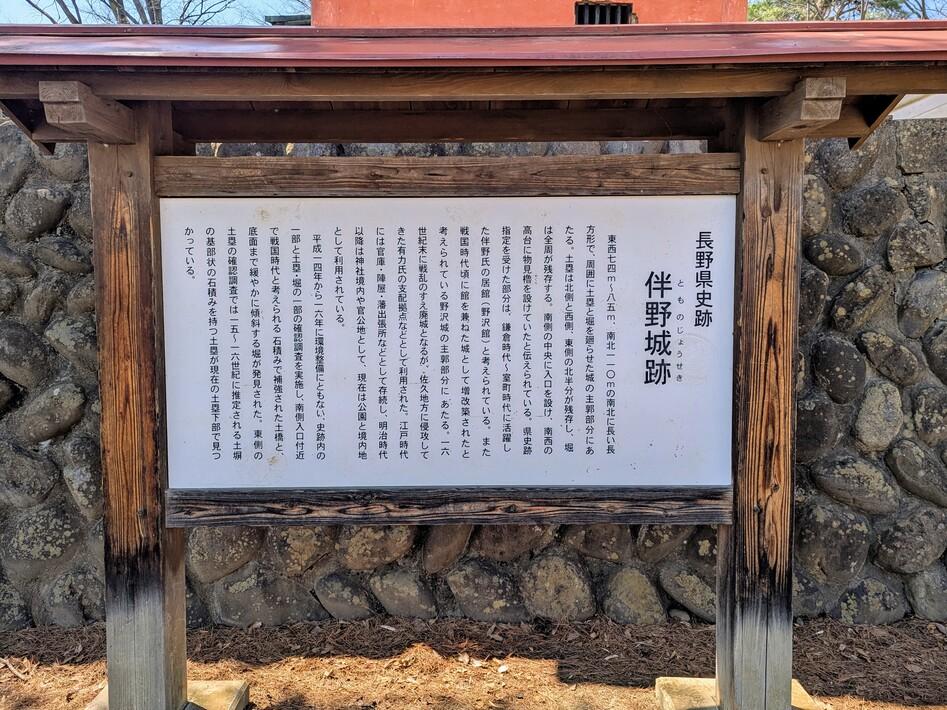 長野県史跡
とものじょうせき
伴野城跡
東西七四m〜八五m、南北一一〇mの南北に長い長
方形で、周囲に土塁と堀を廻らせた城の主郭部分にあ
たる。土塁は北側と西側、東側の北半分が残存し、堀
は全周が残存する。南側の中央に入口を設け、南西の
高台に物見櫓を設けていたと伝えられている。県史跡
指定を受けた部分は、鎌倉時代〜室町時代に活躍し
た伴野氏の居館（野沢館）と考えられている。また
戦国時代頃に館を兼ねた城として増改築されたと
考えられている野沢城の主郭部分にあたる。一六
世紀末に戦乱のすえ廃城となるが、佐久地方に侵攻して
きた有力氏の支配拠点などとして利用された。江戸時代
には官庫・陣屋・藩出張所などとして存続し、明治時代
以降は神社境内や官公地として、現在は公園と境内地
として利用されている。
平成一四年から一六年に環境整備にともない、史跡内の
一部と土塁・堀の一部の確認調査を実施し、南側入口付近
で戦国時代と考えられる石積みで補強された土橋と、
底面まで緩やかに傾斜する堀が発見された。東側の
土塁の確認調査では一五〜一六世紀に推定される土塀
の基部状の石積みを持つ土塁が現在の土塁下部で見つ
かっている。